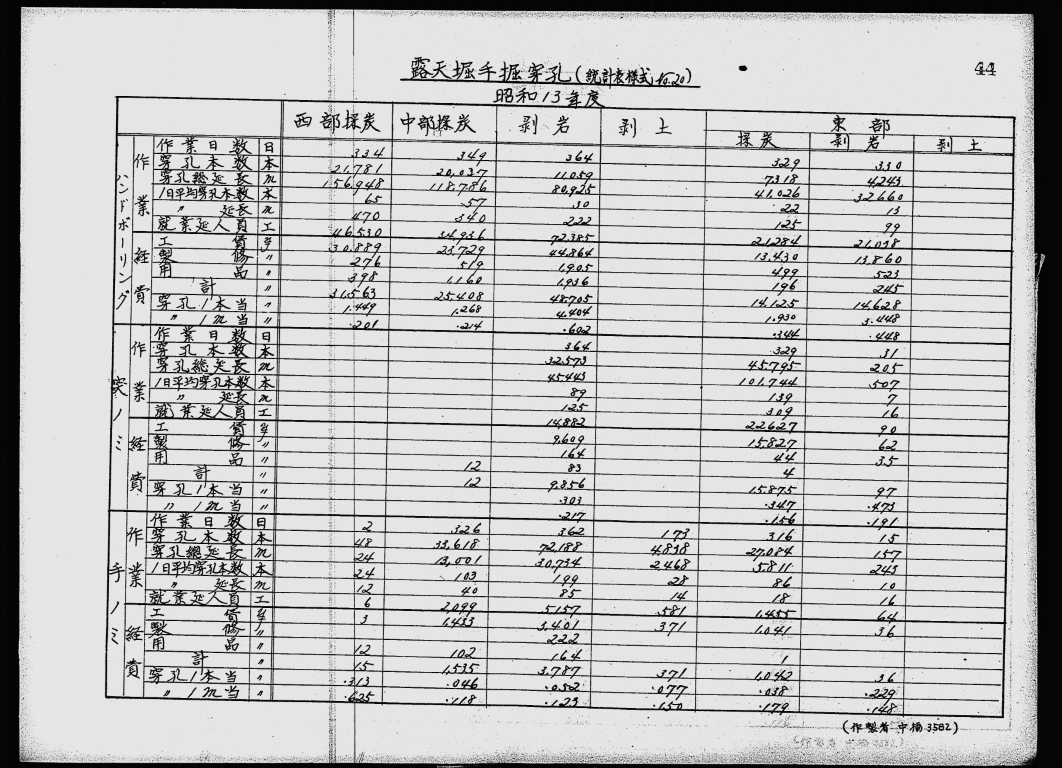 44
露天堀手掘穿孔(統計表様式 No.20)
昭和13年度
西部採炭 中部採炭 剥岩 剥土 東部
採炭 剥岩 剥土
ハンドボーリング
作業
作業日数 日 334 349 364 329 330
穿孔本数 本 21,781 20,037 11,059 7318 4,243
穿孔総延長 m 156,948 118,786 80,925 41,026 32,660
1日平均穿孔本数 本 65 57 30 22 13
〃 延長 m 470 340 222 125 99
就業延人員 工 46,530 34,936 72,385 21,284 21,038
経費
工賃 30,889 23,729 44,864 13,430 13,860
製修 〃 276 519 1,905 499 523
用品 〃 398 1,160 1,936 196 245
計 〃 31,563 25,408 48,705 14,125 14,628
穿孔1本当 〃 1.449 1.268 4.404 1.930 3.448
〃 1m当 〃 .201 .214 .602 .344 .448
作業
作業日数 日 364 329 31
穿孔本数 本 32,573 45,795 205
穿孔総延長 m 45,443 101,744 507
1日平均穿孔本数 本 89 139 7
〃 延長 m 125 309 16
就業延人員 工 14,882 22,627 90
経費
工賃 9,609 15,827 62
製修 〃 164 44 35
用品 〃 12 83 4
計 〃 12 9,856 15,875 97
穿孔1本当 〃 .303 .347 .473
〃 1m当 〃 .217 .156 .191
手ノミ
作業
作業日数 日 2 326 362 173 316 15
穿孔本数 本 48 33,618 72,188 4,838 27,084 157
穿孔総延長 m 24 13,001 30,734 2,468 5,811 243
1日平均穿孔本数 本 24 103 199 28 86 10
〃 延長 m 12 40 85 14 18 16
就業延人員 工 6 2,099 5,157 581 1,455 64
経費
工賃 3 1,433 3,401 371 1,041 36
製修 〃 222
用品 〃 12 102 164 1
計 〃 15 1,535 3,787 371 1,042 36
穿孔1本当 〃 .313 .046 .052 .077 .038 .229
〃 1m当 〃 .625 .118 .123 .150 .179 .148
(作製者 中楠 3582)